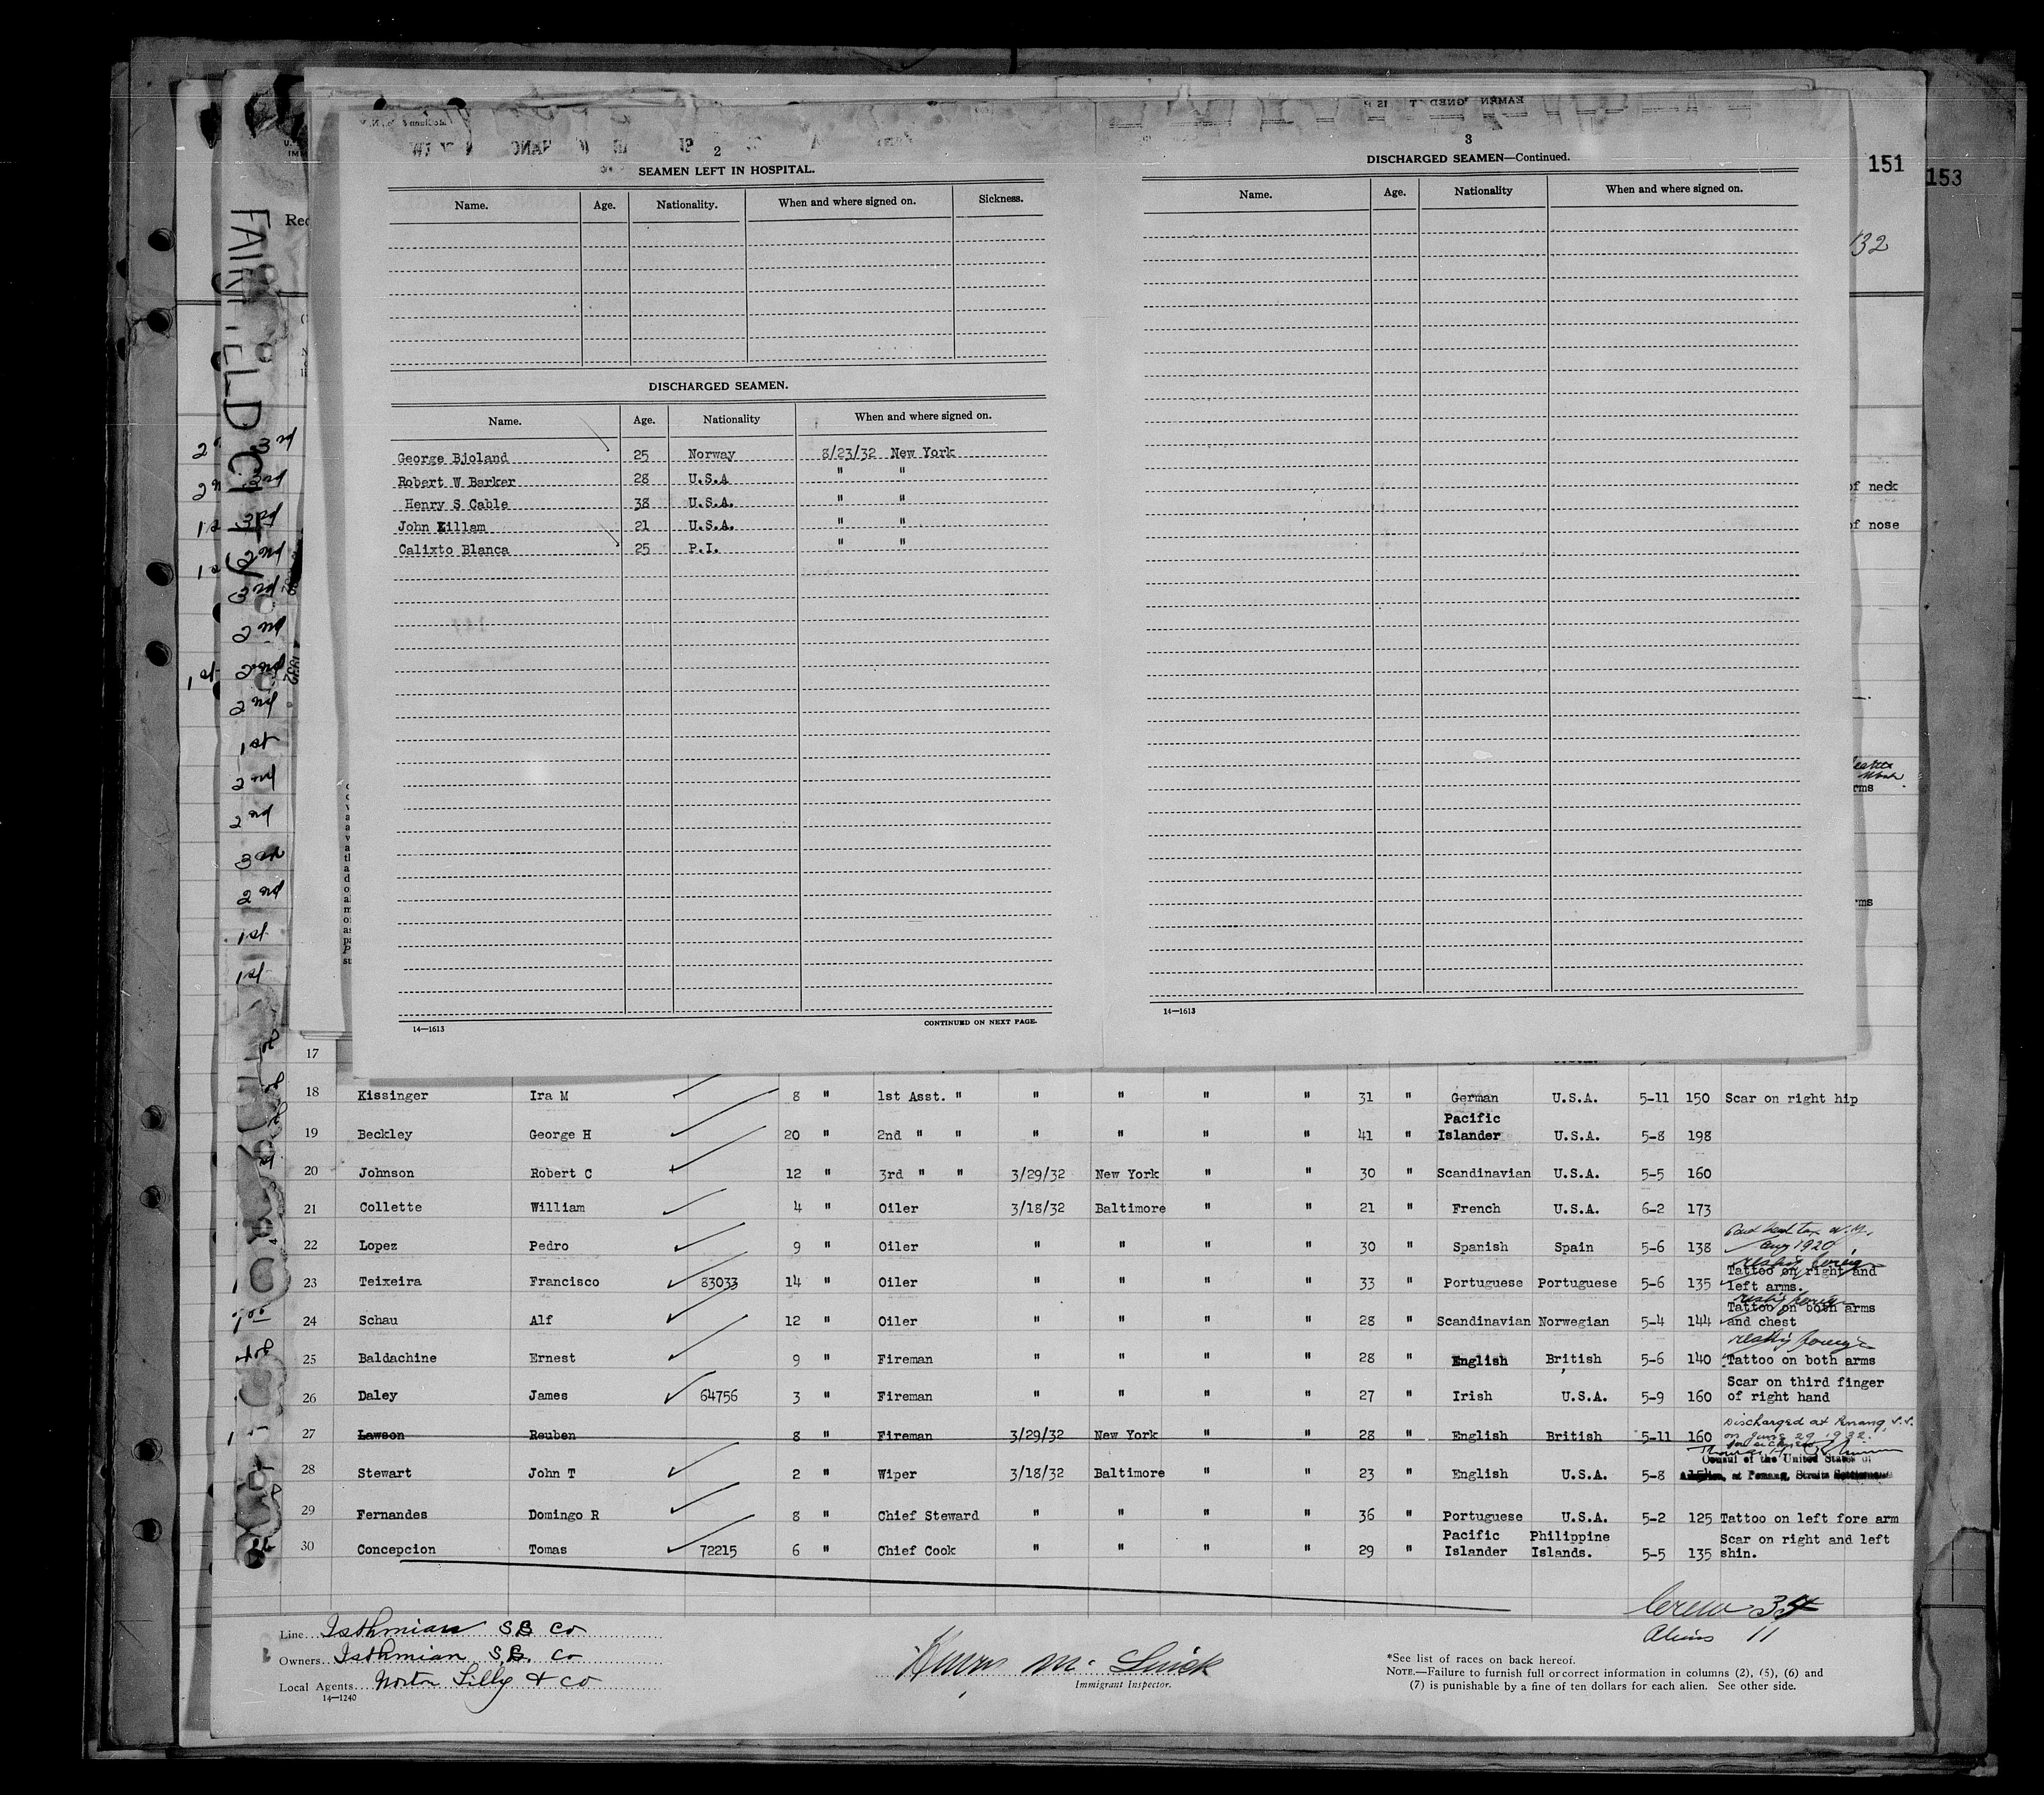 2
SEAMEN LEFT IN HOSPITAL.
Name. Age. Nationality. When and where signed on. Sickness.
DISCHARGED SEAMEN.
Name. Age. Nationality When and where signed on.
George Bjoland 25 Norway 8/23/32 New York
Robert W Barker 28 U.S.A " "
Henry S Cable 38 U.S.A. " "
John Killam 21 U.S.A. " "
Calixto Blanca 25 P.I. " "
14—1613 CONTINUED ON NEXT PAGE.
3
DISCHARGED SEAMEN—Continued.
Name. Age. Nationality When and where signed on.
14—1613
151
153
132
of neck
of nose
rms
rms
FAIRFIELD CITY
Rec
17
18 Kissinger Ira M 8 " 1st Asst. " " " " " 31 " German U.S.A. 5-11 150 Scar on right hip
19 Beckley George H 20 " 2nd " " " " " " 41 " Pacific Islander U.S.A. 5-8 198
20 Johnson Robert C 12 " 3rd " " 3/29/32 New York " " 30 " Scandinavian U.S.A. 5-5 160
21 Collette William 4 " Oiler 3/18/32 Baltimore " " 21 " French U.S.A. 6-2 173
22 Lopez Pedro 9 " Oiler " " " " 30 " Spanish Spain 5-6 138 Aug 1920
23 Teixeira Francisco 83033 14 " Oiler " " " " 33 " Portuguese Portuguese 5-6 135 Tattoo on right and left arms.
24 Schau Alf 12 " Oiler " " " " 28 " Scandinavian Norwegian 5-4 144 Tattoo on both arms and chest
25 Baldachine Ernest 9 " Fireman " " " " 28 " English British 5-6 140 Tattoo on both arms
26 Daley James 64756 3 " Fireman " " " " 27 " Irish U.S.A. 5-9 160 Scar on third finger of right hand
27 Lawson Reuben 8 " Fireman 3/29/32 New York " " 28 " English British 5-11 160 Discharged at Penang S.S. on June 29 1932.
Consul of the United States of
America, at Penang, Straits Settlements
28 Stewart John T 2 " Wiper 3/18/32 Baltimore " " 23 " English U.S.A. 5-8
29 Fernandes Domingo R 8 " Chief Steward " " " " 36 " Portuguese U.S.A. 5-2 125 Tattoo on left fore arm
30 Concepcion Tomas 72215 6 " Chief Cook " " " " 29 " Pacific Islander Philippine Islands. 5-5 135 Scar on right and left shin.
Crew 34
Aliens 11
Line Isthmian S.S. Co
Owners Isthmian S.S. Co
Local Agents Norton Lilly & Co
14—1240
Immigrant Inspector.
*See list of races on back hereof.
NOTE.—Failure to furnish full or correct information in columns (2), (5), (6) and
(7) is punishable by a fine of ten dollars for each alien. See other side.